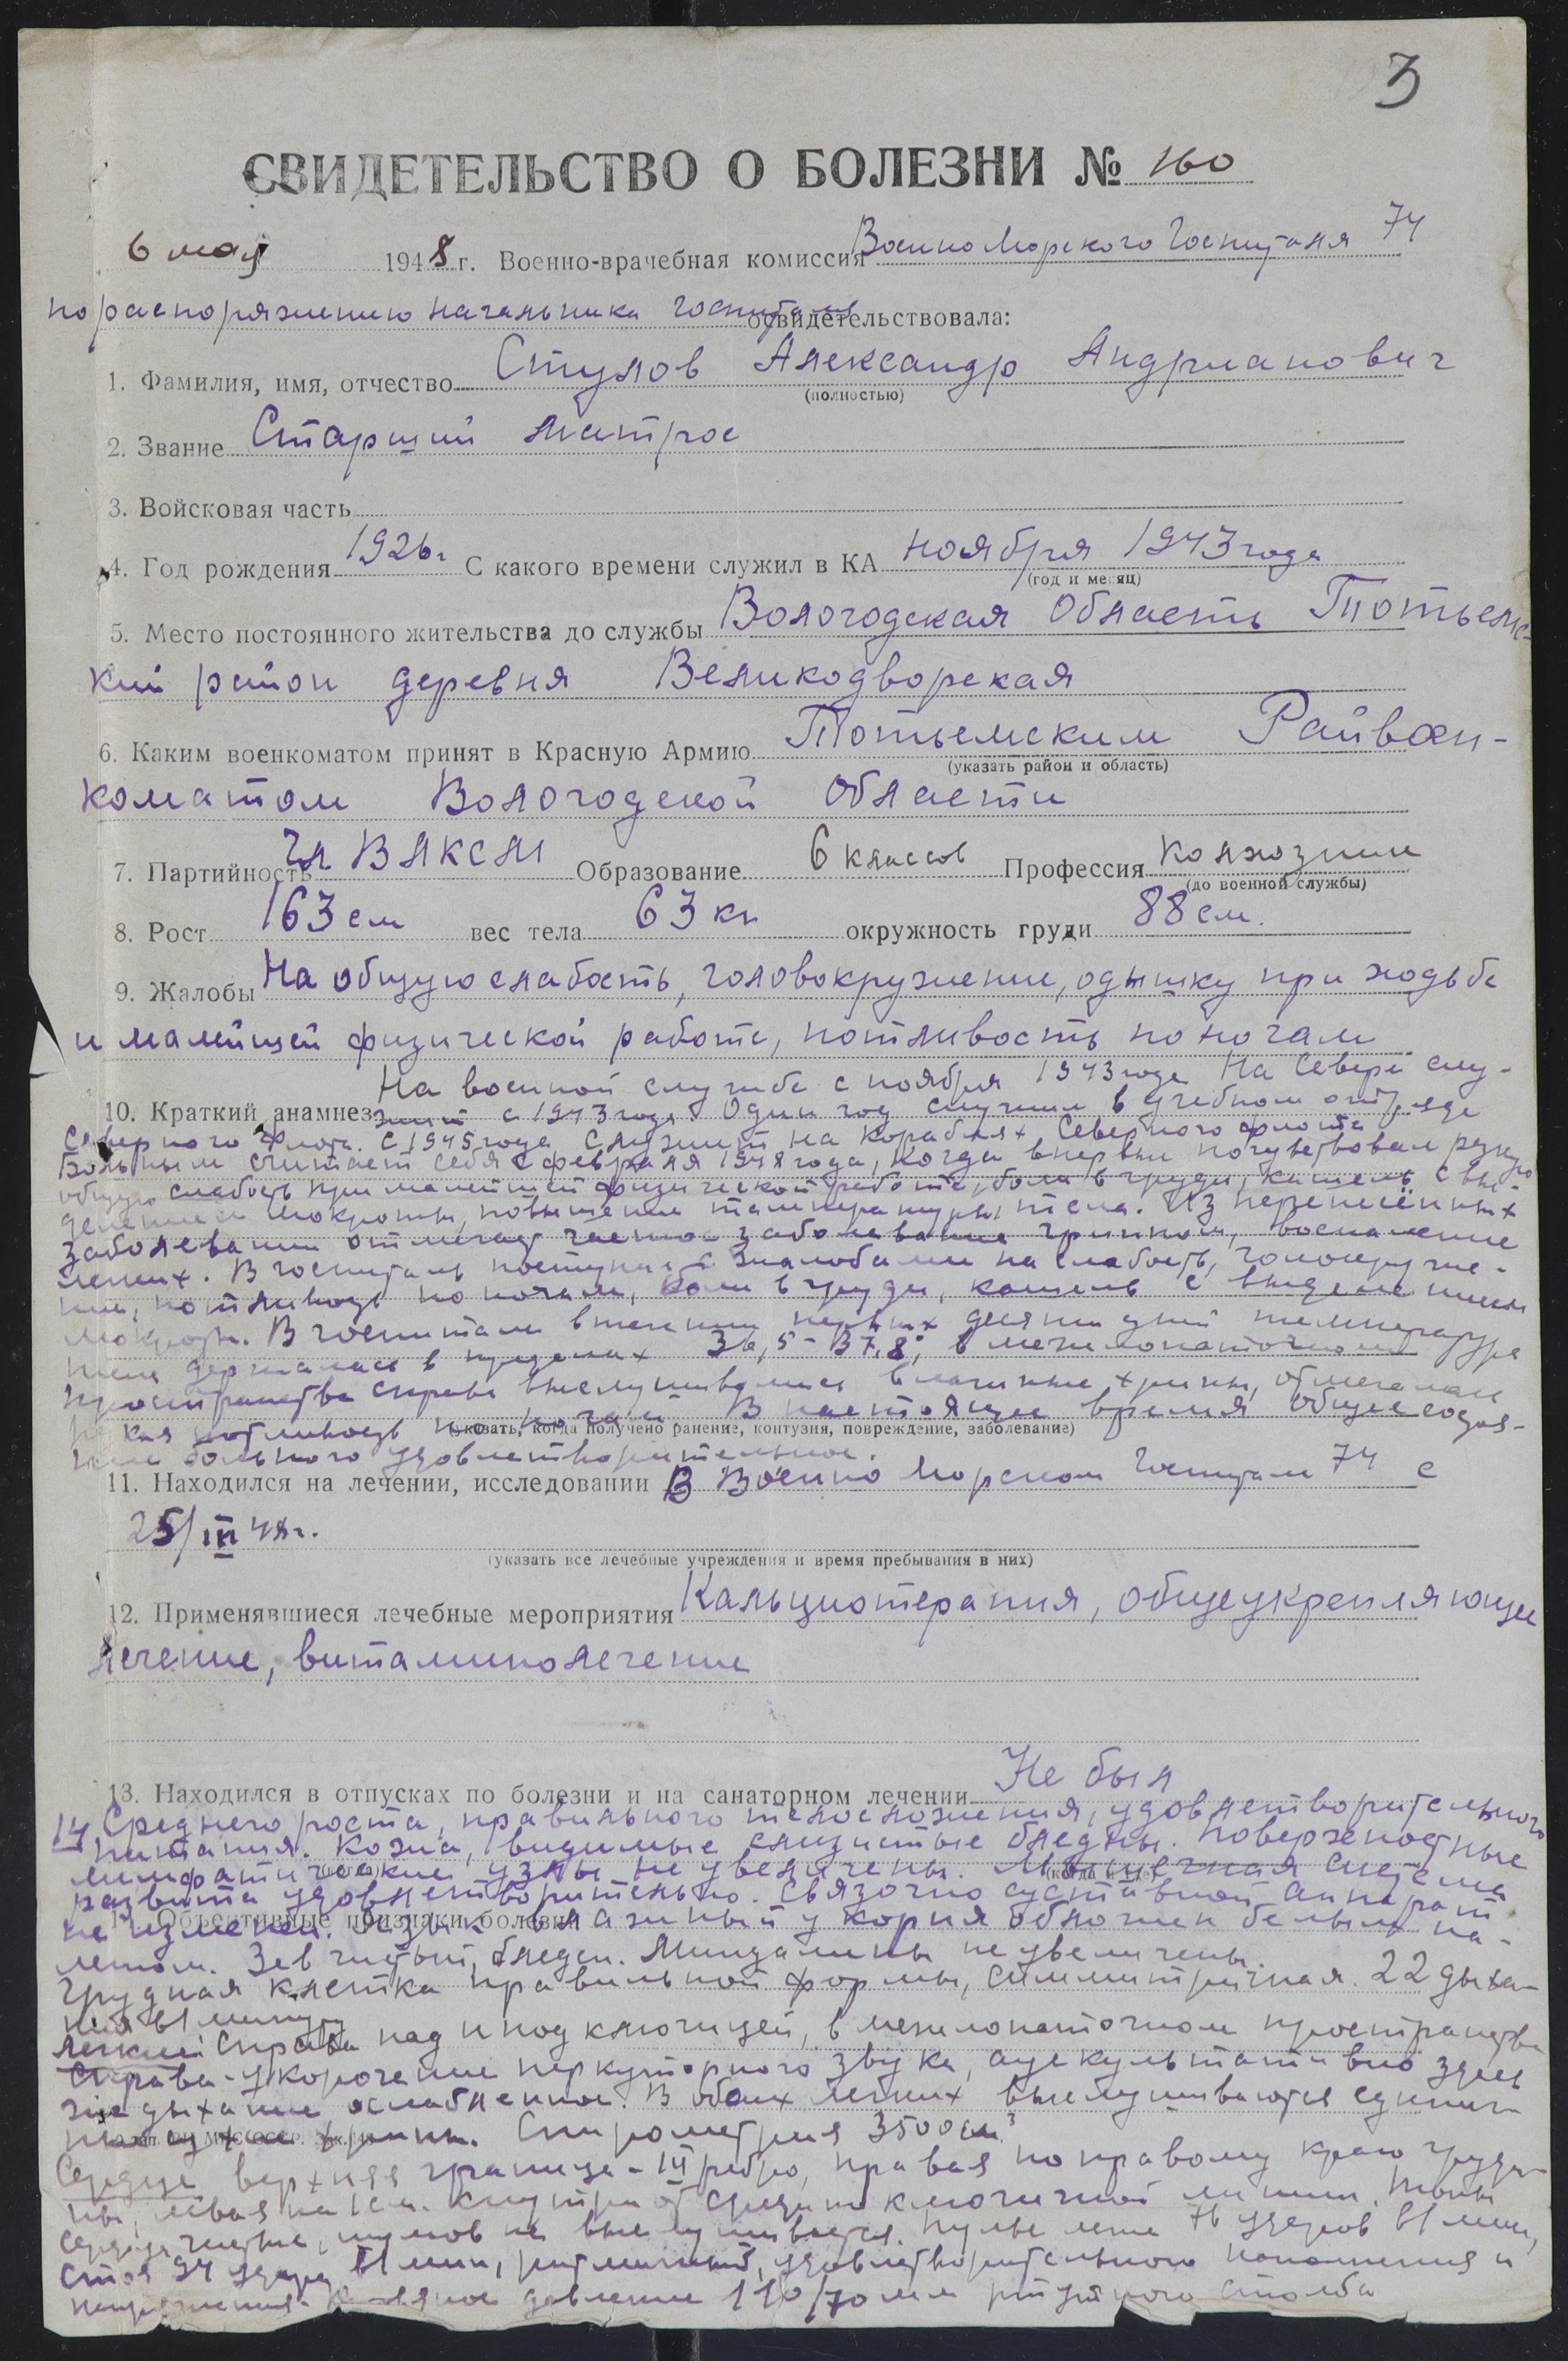 3
СВИДЕТЕЛЬСТВО О БОЛЕЗНИ № 160
6 мая 1948 г. Военно-врачебная комиссия Военно Морского Госпиталя 74
по распоряжению начальника госпиталя освидетельствовала:
1. Фамилия, имя, отчество Ступов Александр Андрианович
(полностью)
2. Звание Старший матрос
3. Войсковая часть
4. Год рождения 1926г С какого времени служил в КА ноября 1943 года
(год и месяц)
5. Место постоянного жительства до службы Вологодская Область Тотьемс-
кий район деревня Великодворская
6. Каким военкоматом принят в Красную Армию Тотьемским Райвоен-
(указать район и область)
коматом Вологодской Области
7. Партийность чл ВЛКСМ Образование 6 классов Профессия колхозник
(до военной службы)
8. Рост 163 см вес тела 63 кг окружность груди 88 см.
9. Жалобы На общую слабость, головокружение, одышку при ходьбе
и малейшей физической работе, потливость по ночам
На военной службе с ноября 1943 года На Севере слу-
10. Краткий анамнез жит с 1943 года. Один год служил в учебном отряде
Северного Флота. С 1945 года служит на кораблях Северного флота
Больным считает себя с февраля 1948 года, когда впервые почувствовал резкую
общую слабость при малейшей физической работе, боли в груди, кашель с вы-
делением мокроты, повышение температуры тела. Из перенесённых
заболевании отмечает частое заболевание гриппом, воспаление
легких. В госпиталь поступил с жалобами на слабость, головокруже-
ние, потливость по ночам, боли в груди, кашель с выделением
мокроты. В госпитале в течении первых десяти дней температура
тела держалась в пределах 36,5 - 37,8; в межлопаточном
пространстве справа выслушивались влажные хрипы, отмечалась
потливость по ночам. В настоящее время общее состоя-
(указать, когда получено ранение, контузия, повреждение, заболевание)
ние больного удовлетворительное.
11. Находился на лечении, исследовании В Военно Морском Госпитале 74 с
25/III 48г.
(указать все лечебные учреждения и время пребывания в них)
12. Применявшиеся лечебные мероприятия Кальциотерапия, общеукрепляющее
лечение, витаминолечение
13. Находился в отпусках по болезни и на санаторном лечении Не был
14 Среднего роста, правильного телосложения, удовлетворительного
питания. Кожа, видимые слизистые бледны. Поверхностные
лимфатические узлы не увеличены. Мышечная система
(когда и где)
развита удовлетворительно. Связочно суставной аппарат
14. Объективные признаки болезни
не изменен. Язык влажный у корня обложен белым на-
летом. Зев чистый, бледен. Миндалины не увеличены.
Грудная клетка правильной формы, симметричная. 22 дыха-
ния в 1 минуту
Легкие: Справа над и под ключицей, в межлопаточном пространстве
справа - укорочение перкуторного звука, аускультативно здесь
же дыхание ослабленное. В обоих легких выслушиваются единич-
ные сухие хрипы. Спирометрия 3500 см³
Сердце верхняя граница - III ребро, правая по правому краю груди-
ны, левая на 1 см. кнутри от средино ключичной линии. Тоны
сердца чистые, шумов не выслушивается. Пульс лежа 76 ударов в 1 мин,
стоя 94 удара в 1 мин, ритмичный, удовлетворительного наполнения и
напряжения. Кровяное давление 110/70 мм ртутного столба